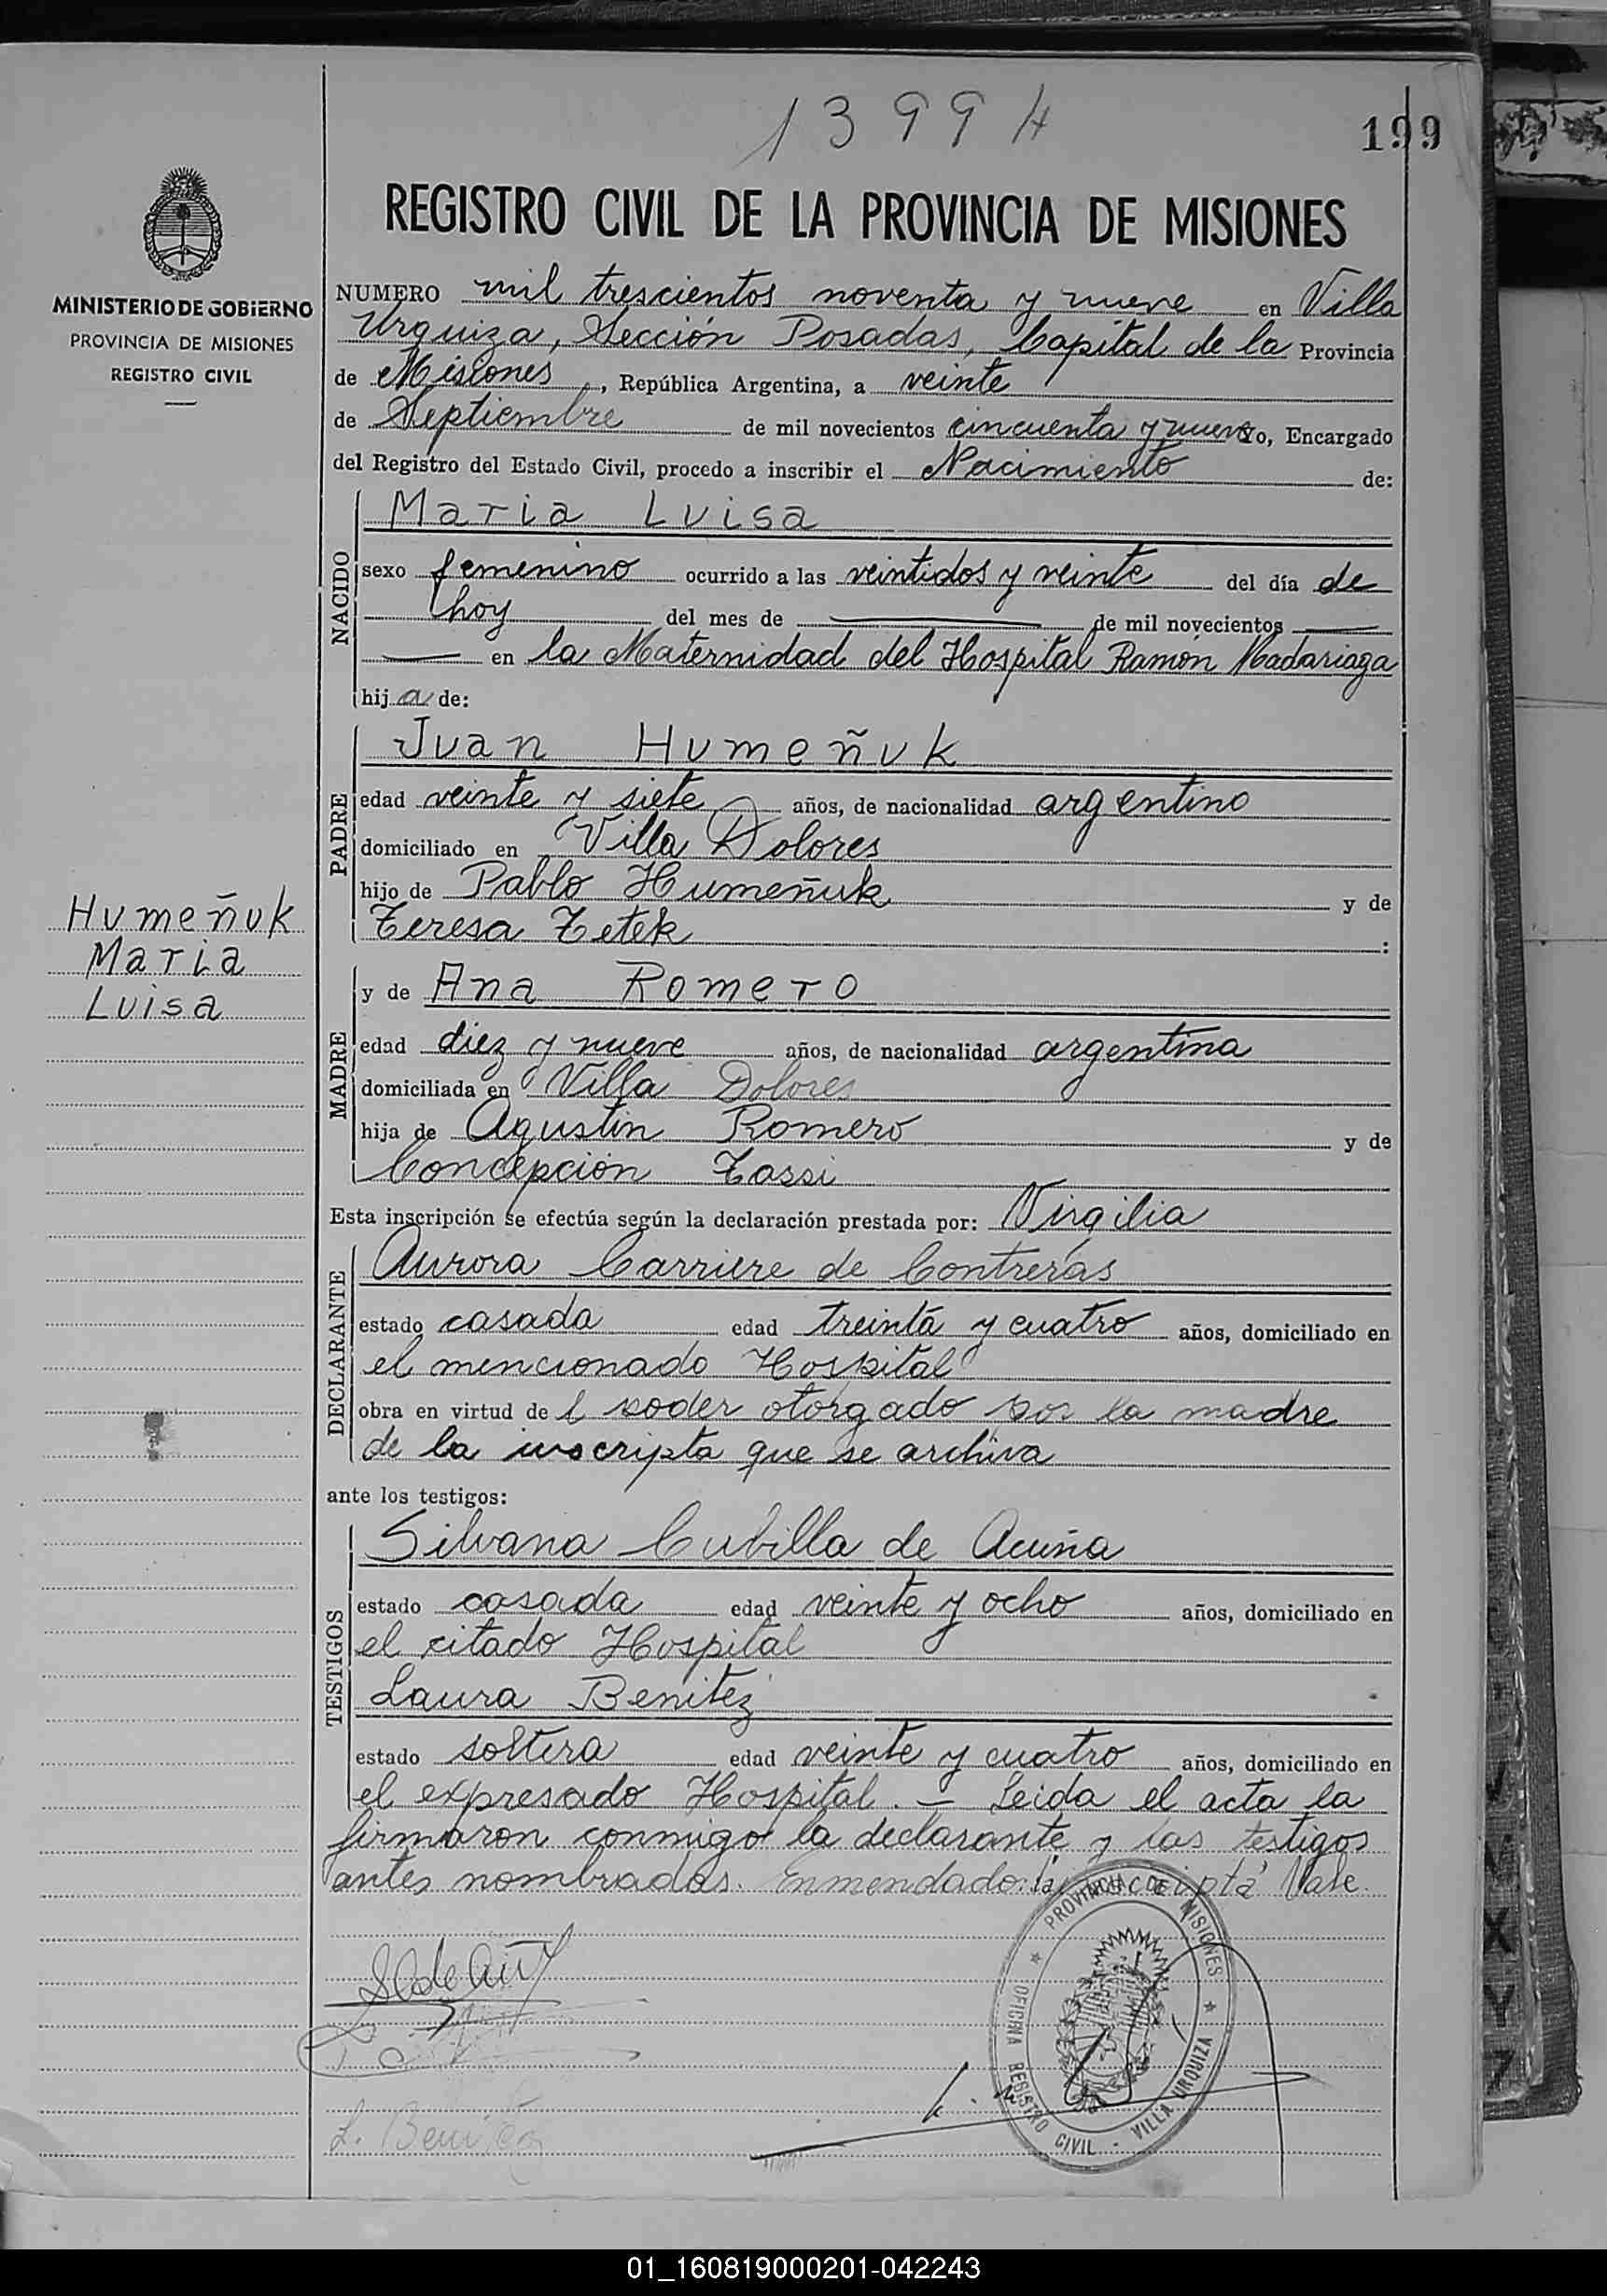 1399 H
199
MINISTERIO DE GOBIERNO
PROVINCIA DE MISIONES
REGISTRO CIVIL
REGISTRO CIVIL DE LA PROVINCIA DE MISIONES
NUMERO mil trescientos noventa y nueve en Villa
Urquiza, Sección Posadas, Capital de la Provincia
de Misiones, República Argentina, a veinte
de Septiembre de mil novecientos cincuenta y nueve yo, Encargado
del Registro del Estado Civil, procedo a inscribir el Nacimiento de:
NACIDO
Maria Luisa
sexo femenino ocurrido a las veintidos y veinte del día de
hoy del mes de — de mil novecientos —
— en la Maternidad del Hospital Ramón Madariaga
hija de:
PADRE
Juan Humeñuk
edad veinte y siete años, de nacionalidad argentino
domiciliado en Villa Dolores
hijo de Pablo Humeñuk y de
Teresa Tetek :
Humeñuk
Maria
Luisa
MADRE
y de Ana Romero
edad diez y nueve años, de nacionalidad argentina
domiciliada en Villa Dolores
hija de Agustin Romero y de
Concepción Tassi
Esta inscripción se efectúa según la declaración prestada por: Virgilia
DECLARANTE
Aurora Carriere de Contreras
estado casada edad treinta y cuatro años, domiciliado en
el mencionado Hospital
obra en virtud del poder otorgado por la madre
de la inscripta que se archiva
ante los testigos:
TESTIGOS
Silvana Cubilla de Acuña
estado casada edad veinte y ocho años, domiciliado en
el citado Hospital
Laura Benitez
estado soltera edad veinte y cuatro años, domiciliado en
el expresado Hospital. — Leida el acta la
firmaron conmigo la declarante y las testigos
antes nombradas. Enmendado: inscripta Vale
L. Benitez
PROVINCIA DE MISIONES
OFICINA REGISTRO CIVIL - VILLA URQUIZA
X
Y
Z
01_160819000201-042243